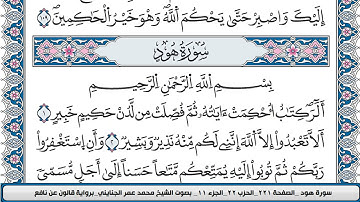 إِلَيْكَ وَاصْبِرْ حَتَّىٰ يَحْكُمَ اَ۬للَّهُۖ وَهُوَ خَيْرُ اُ۬لْحَٰكِمِينَۖ ١٠٩
سُورَةُ هُودٍ
بِسْمِ اِ۬للَّهِ اِ۬لرَّحْمَٰنِ اِ۬لرَّحِيمِ
أَلَٓرۖ كِتَٰبٌ احْكِمَتْ ءَايَٰتُهُۥ ثُمَّ فُصِّلَتْ مِن لَّدُنْ حَكِيمٍ خَبِيرٍ ١
أَلَّا تَعْبُدُوٓاْ إِلَّا اَ۬للَّهَۖ إِنَّنِي لَكُم مِّنْهُ نَذِيرٌ وَبَشِيرٌۖ ٢ وَأَنِ اِ۪سْتَغْفِرُواْ
رَبَّكُمْ ثُمَّ تُوبُوٓاْ إِلَيْهِ يُمَتِّعْكُم مَّتَٰعاً حَسَناً إِلَىٰٓ أَجَلٍ مُّسَمّىٗ
سورة هود _الصفحة ٢٢١_الحزب ٢٢_الجزء ١١_ بصوت الشيخ محمد عمر الجنايني _برواية قالون عن نافع